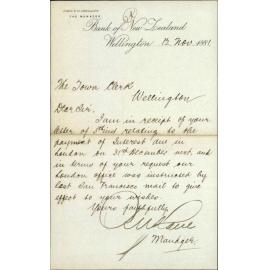 THE MANAGER
Bank of New Zealand
Wellington 12 Nov. 1881
The Town Clerk
Wellington
Dear Sir,
I am in receipt of your
letter of inst relating to the
payment of Interest due in
London on 31st December next and
in terms of your request our
London office was instructed by
last San Francisco mail to give
effect to your wishes.
Yours faithfully
Manager